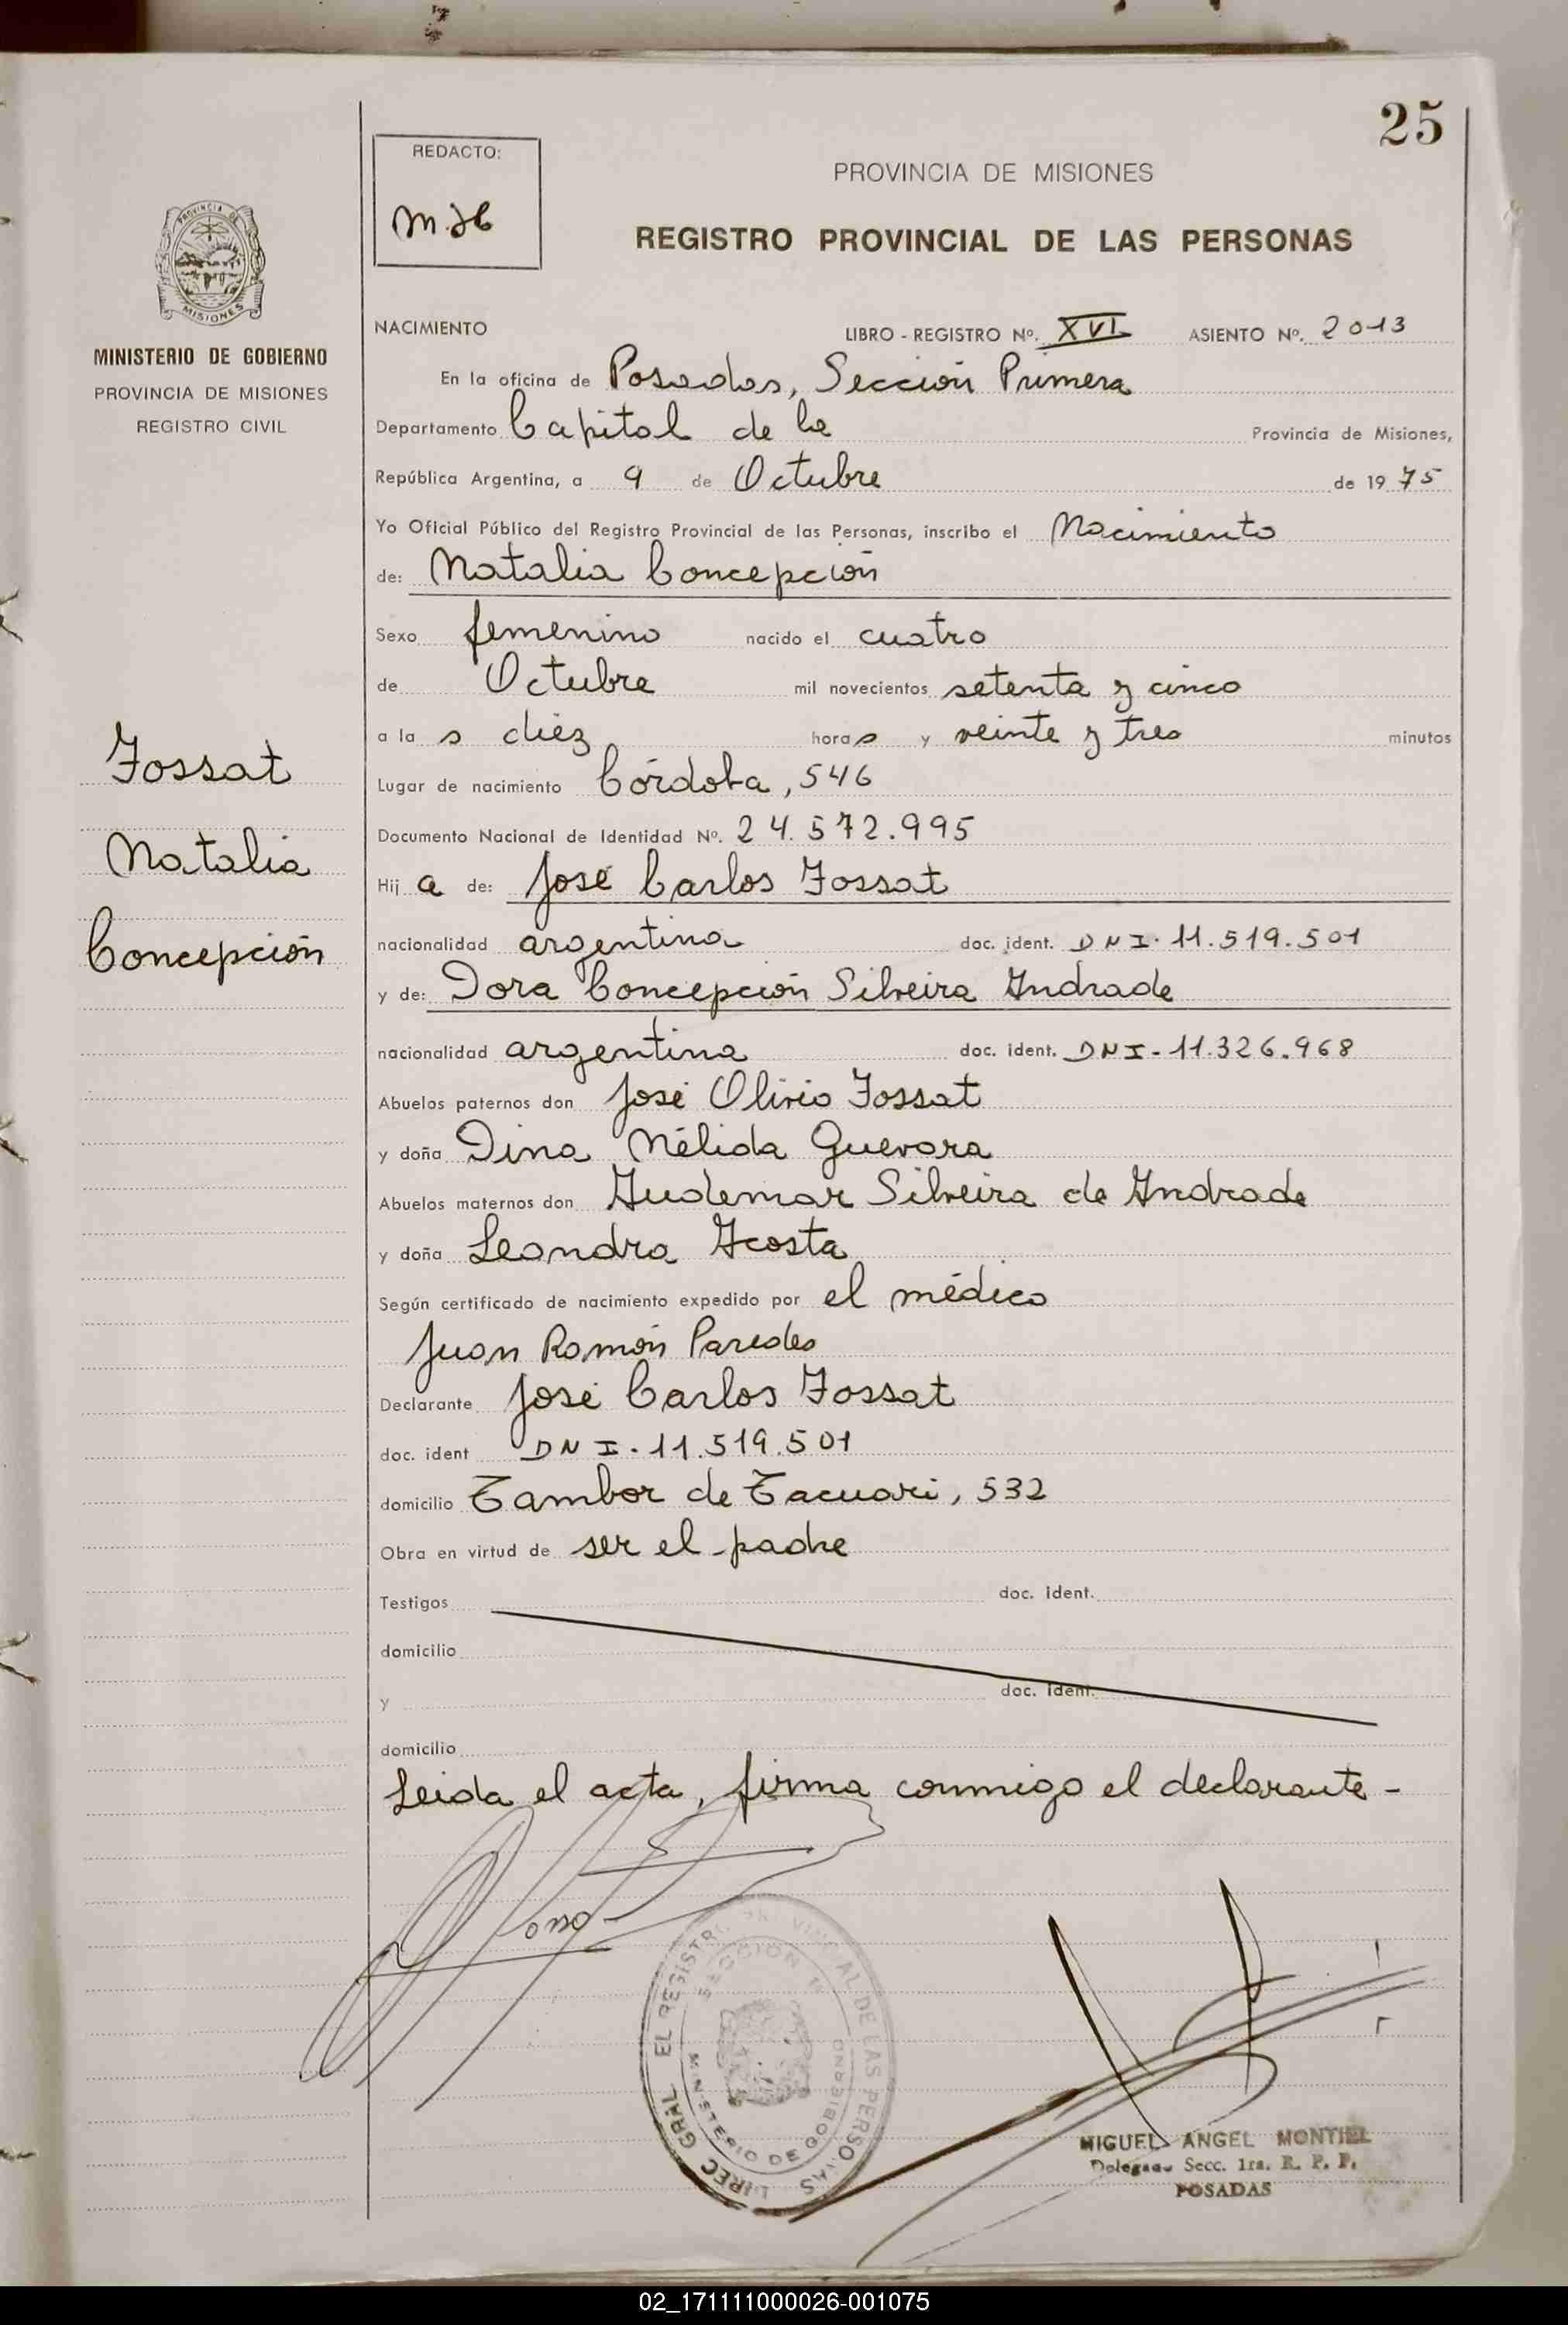 25
REDACTO:
PROVINCIA DE MISIONES
REGISTRO PROVINCIAL DE LAS PERSONAS
PROVINCIA DE
MISIONES
MINISTERIO DE GOBIERNO
PROVINCIA DE MISIONES
REGISTRO CIVIL
NACIMIENTO LIBRO - REGISTRO Nº. XVI ASIENTO Nº. 2013
En la oficina de Posadas, Sección Primera
Departamento Capital de la Provincia de Misiones,
República Argentina, a 9 de Octubre de 1975
Yo Oficial Público del Registro Provincial de las Personas, inscribo el Nacimiento
de: Natalia Concepción
Sexo femenino nacido el cuatro
de Octubre mil novecientos setenta y cinco
a la s diez horas y veinte y tres minutos
Lugar de nacimiento Córdoba, 546
Documento Nacional de Identidad Nº. 24.572.995
Hij a de: José Carlos Fossat
nacionalidad argentina doc. ident. DNI. 11.519.501
y de: Dora Concepción Silveira Andrade
nacionalidad argentina doc. ident. DNI- 11.326.968
Abuelos paternos don José Olivio Fossat
y doña Dina Nélida Guevara
Abuelos maternos don Audemar Silveira de Andrade
y doña Leandra Acosta
Según certificado de nacimiento expedido por el médico
Juan Ramón Paredes
Declarante José Carlos Fossat
doc. ident DNI. 11.519.501
domicilio Tambor de Tacuari, 532
Obra en virtud de ser el padre
Testigos doc. ident.
domicilio
y doc. ident.
domicilio
Leida el acta, firma conmigo el declarante -
Fossat
Natalia
Concepción
MINISTERIO DE GOBIERNO
MIGUEL ANGEL MONTIEL
Delegado Secc. 1ra. R. P. P.
POSADAS
02_171111000026-001075